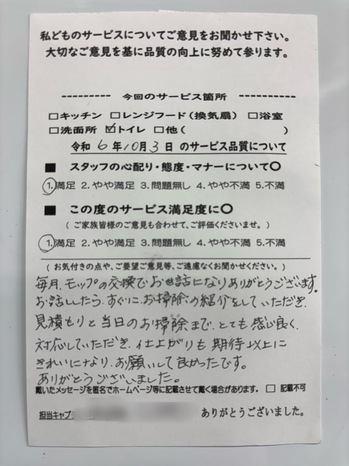 私どものサービスについてご意見をお聞かせ下さい。
大切なご意見を基に品質の向上に努めて参ります。
今回のサービス箇所
□キッチン □レンジフード(換気扇) □浴室
□洗面所 ☑トイレ □他( )
令和 6 年 10 月 3 日 のサービス品質について
■ スタッフの心配り・態度・マナーについて○
1.満足 2.やや満足 3.問題無し 4.やや不満 5.不満
■ この度のサービス満足度に○
(ご家族皆様のご意見も合わせて、ご評価くださいませ。)
1.満足 2.やや満足 3.問題無し 4.やや不満 5.不満
(お気付きの点や、ご要望ご意見等、ご遠慮なくお聞かせください。)
毎月、モップの交換でお世話になりありがとうございます。
お話ししたら、すぐに、お掃除の紹介をしていただき、
見積もりと当日のお掃除まで、とても感じ良く、
対応していただき、仕上がりも期待以上に
きれいになり、お願いして良かったです。
ありがとうございました。
戴いたメッセージを匿名でホームページ等に記載させて戴く場合があります。 □ 記載不可
担当キャプ
ありがとうございました。